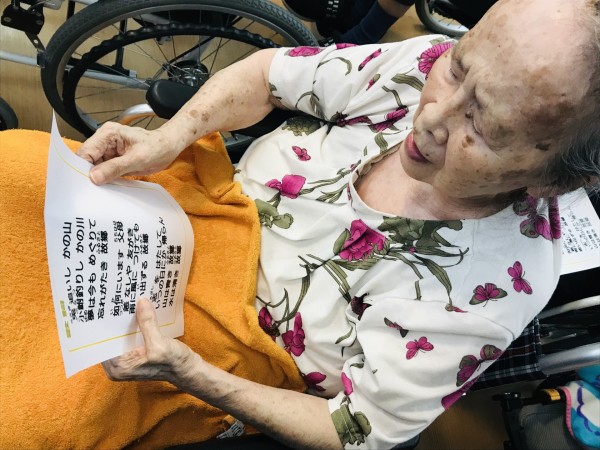 追いし かの山
小鮒釣りし かの川
夢は今も めぐりて
忘れがたき 故郷
如何にいます 父母
恙なしや 友がき
雨に風に つけても
い出ずる 故郷
を はたして
いつの日にか 帰らん
山は青き 故郷
水は清き 故郷